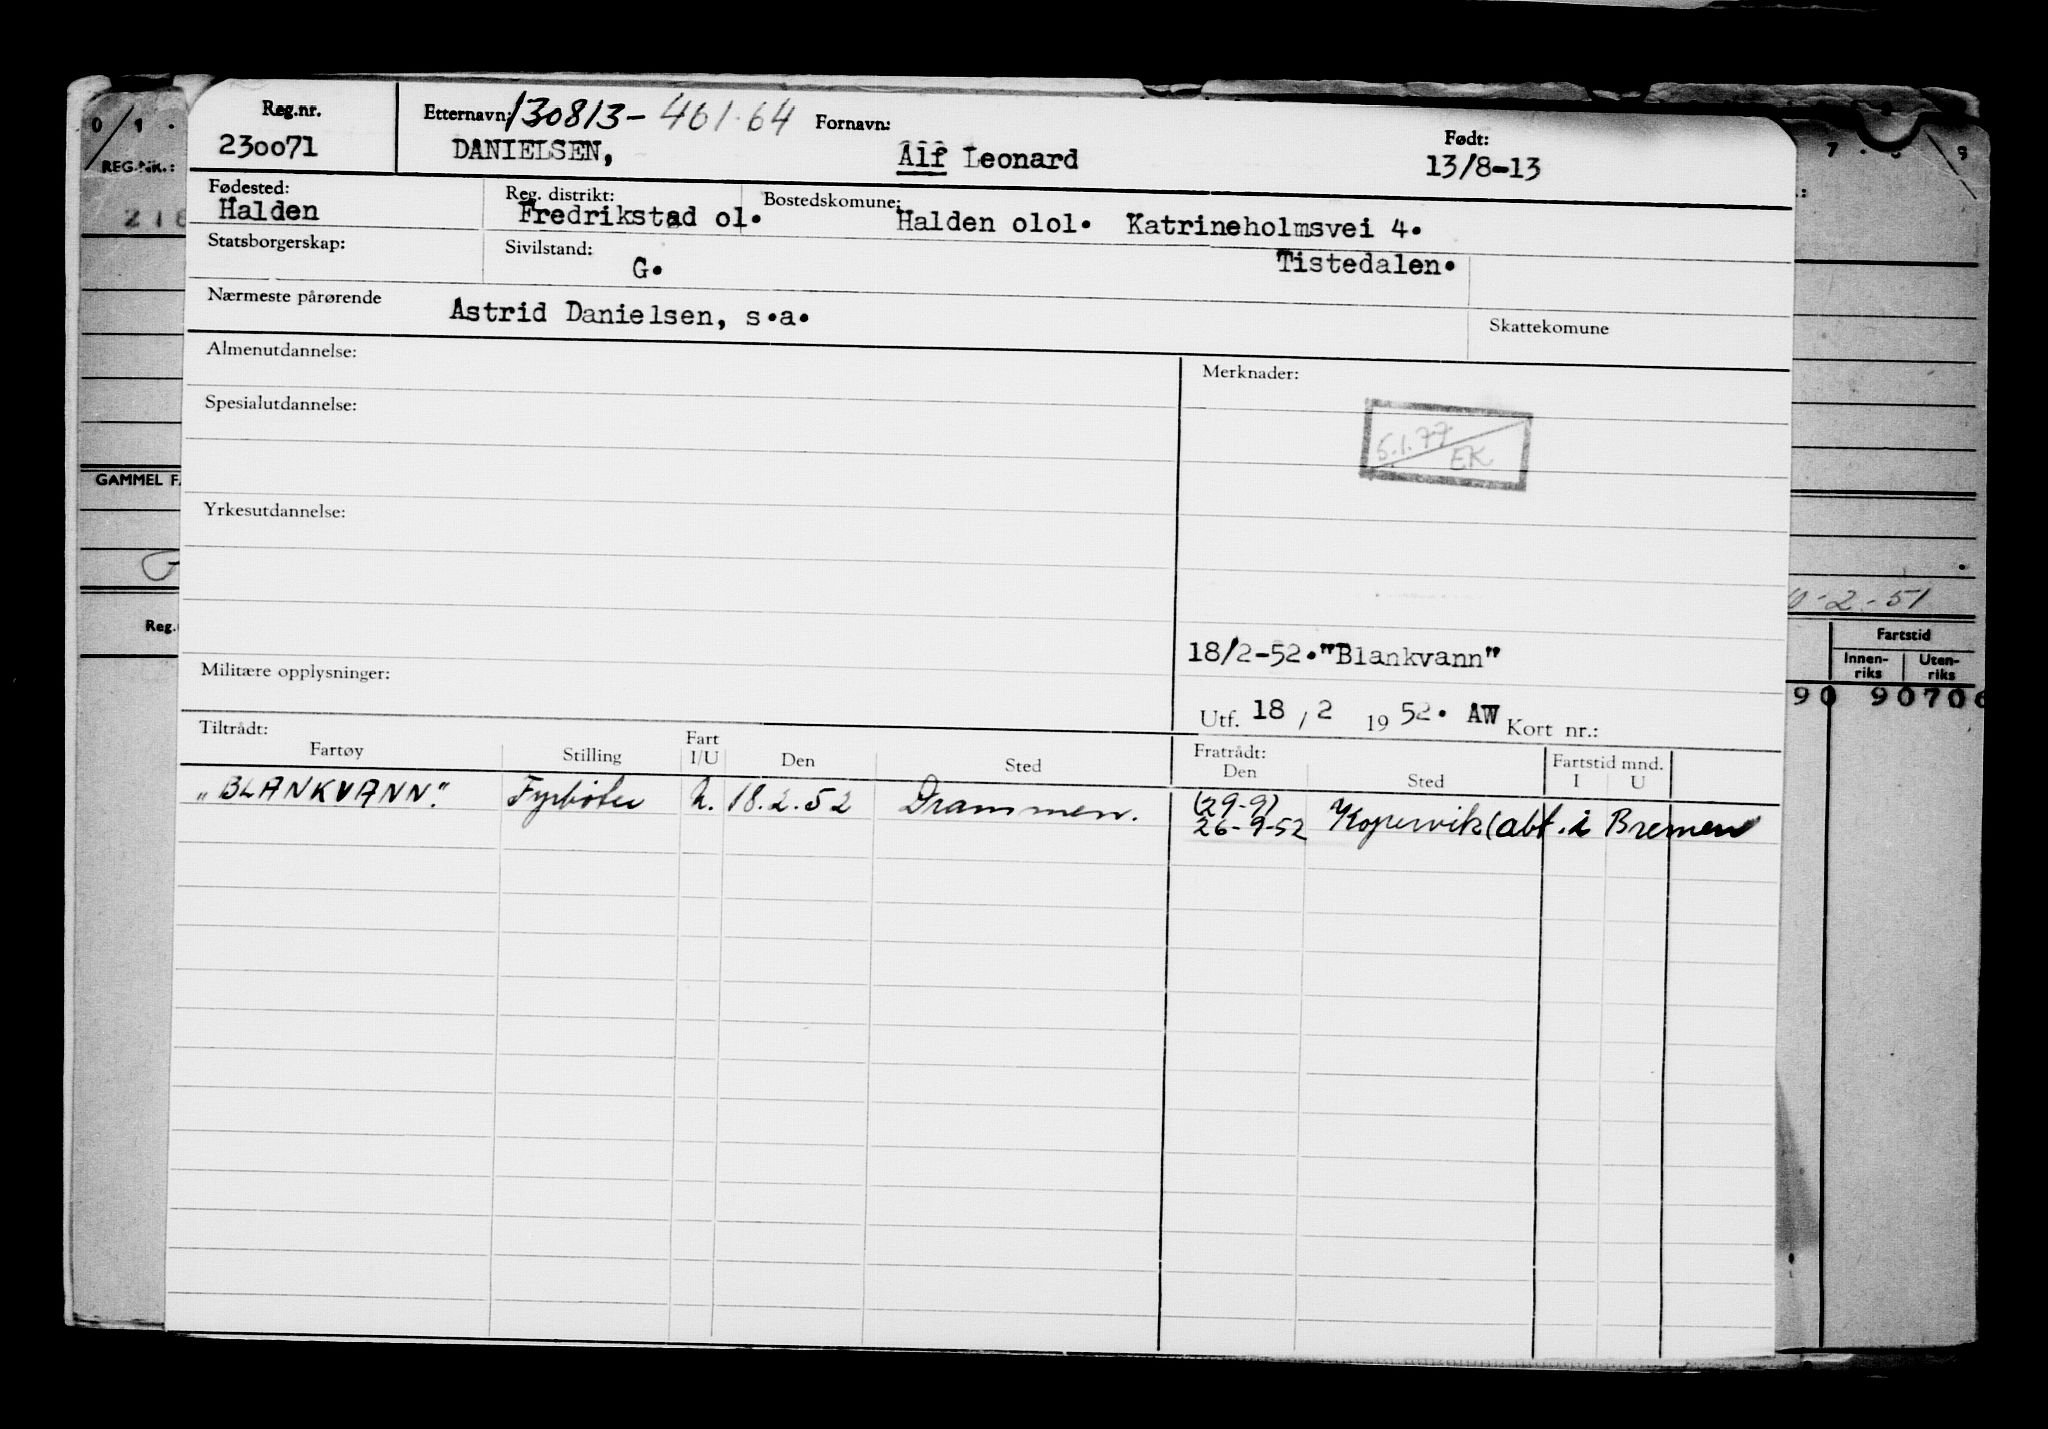 Reg.nr. Etternavn: 130813-46164 Fornavn: Født:
230071 DANIELSEN, Alf Leonard 13/8-13
Fødested: Reg. distrikt: Bostedskomune:
Halden Fredrikstad 01. Halden 0101. Katrineholmsvei 4.
Statsborgerskap: Sivilstand: G. Tistedalen.
Nærmeste pårørende Astrid Danielsen, s.a. Skattekomune
Almenutdannelse: Merknader:
Spesialutdannelse:
5.1.77
EK
Yrkesutdannelse:
18/2-52."Blankvann"
Militære opplysninger:
Utf. 18 / 2 19 52. AW Kort nr.:
Tiltrådt: Fratrådt:
Fartøy Stilling Fart I/U Den Sted Den Sted Fartstid mnd. I U
„BLANKVANN". Fyrbøter U. 18.2.52 Drammen. (29-9)
26-9-52 Kopervik (abt. i Bremen
0 1 .
REG.NR.:
218
GAMMEL F
Reg.
7 . 8 9
0-2-51
Fartstid
Innen-riks Uten-riks
90 90706